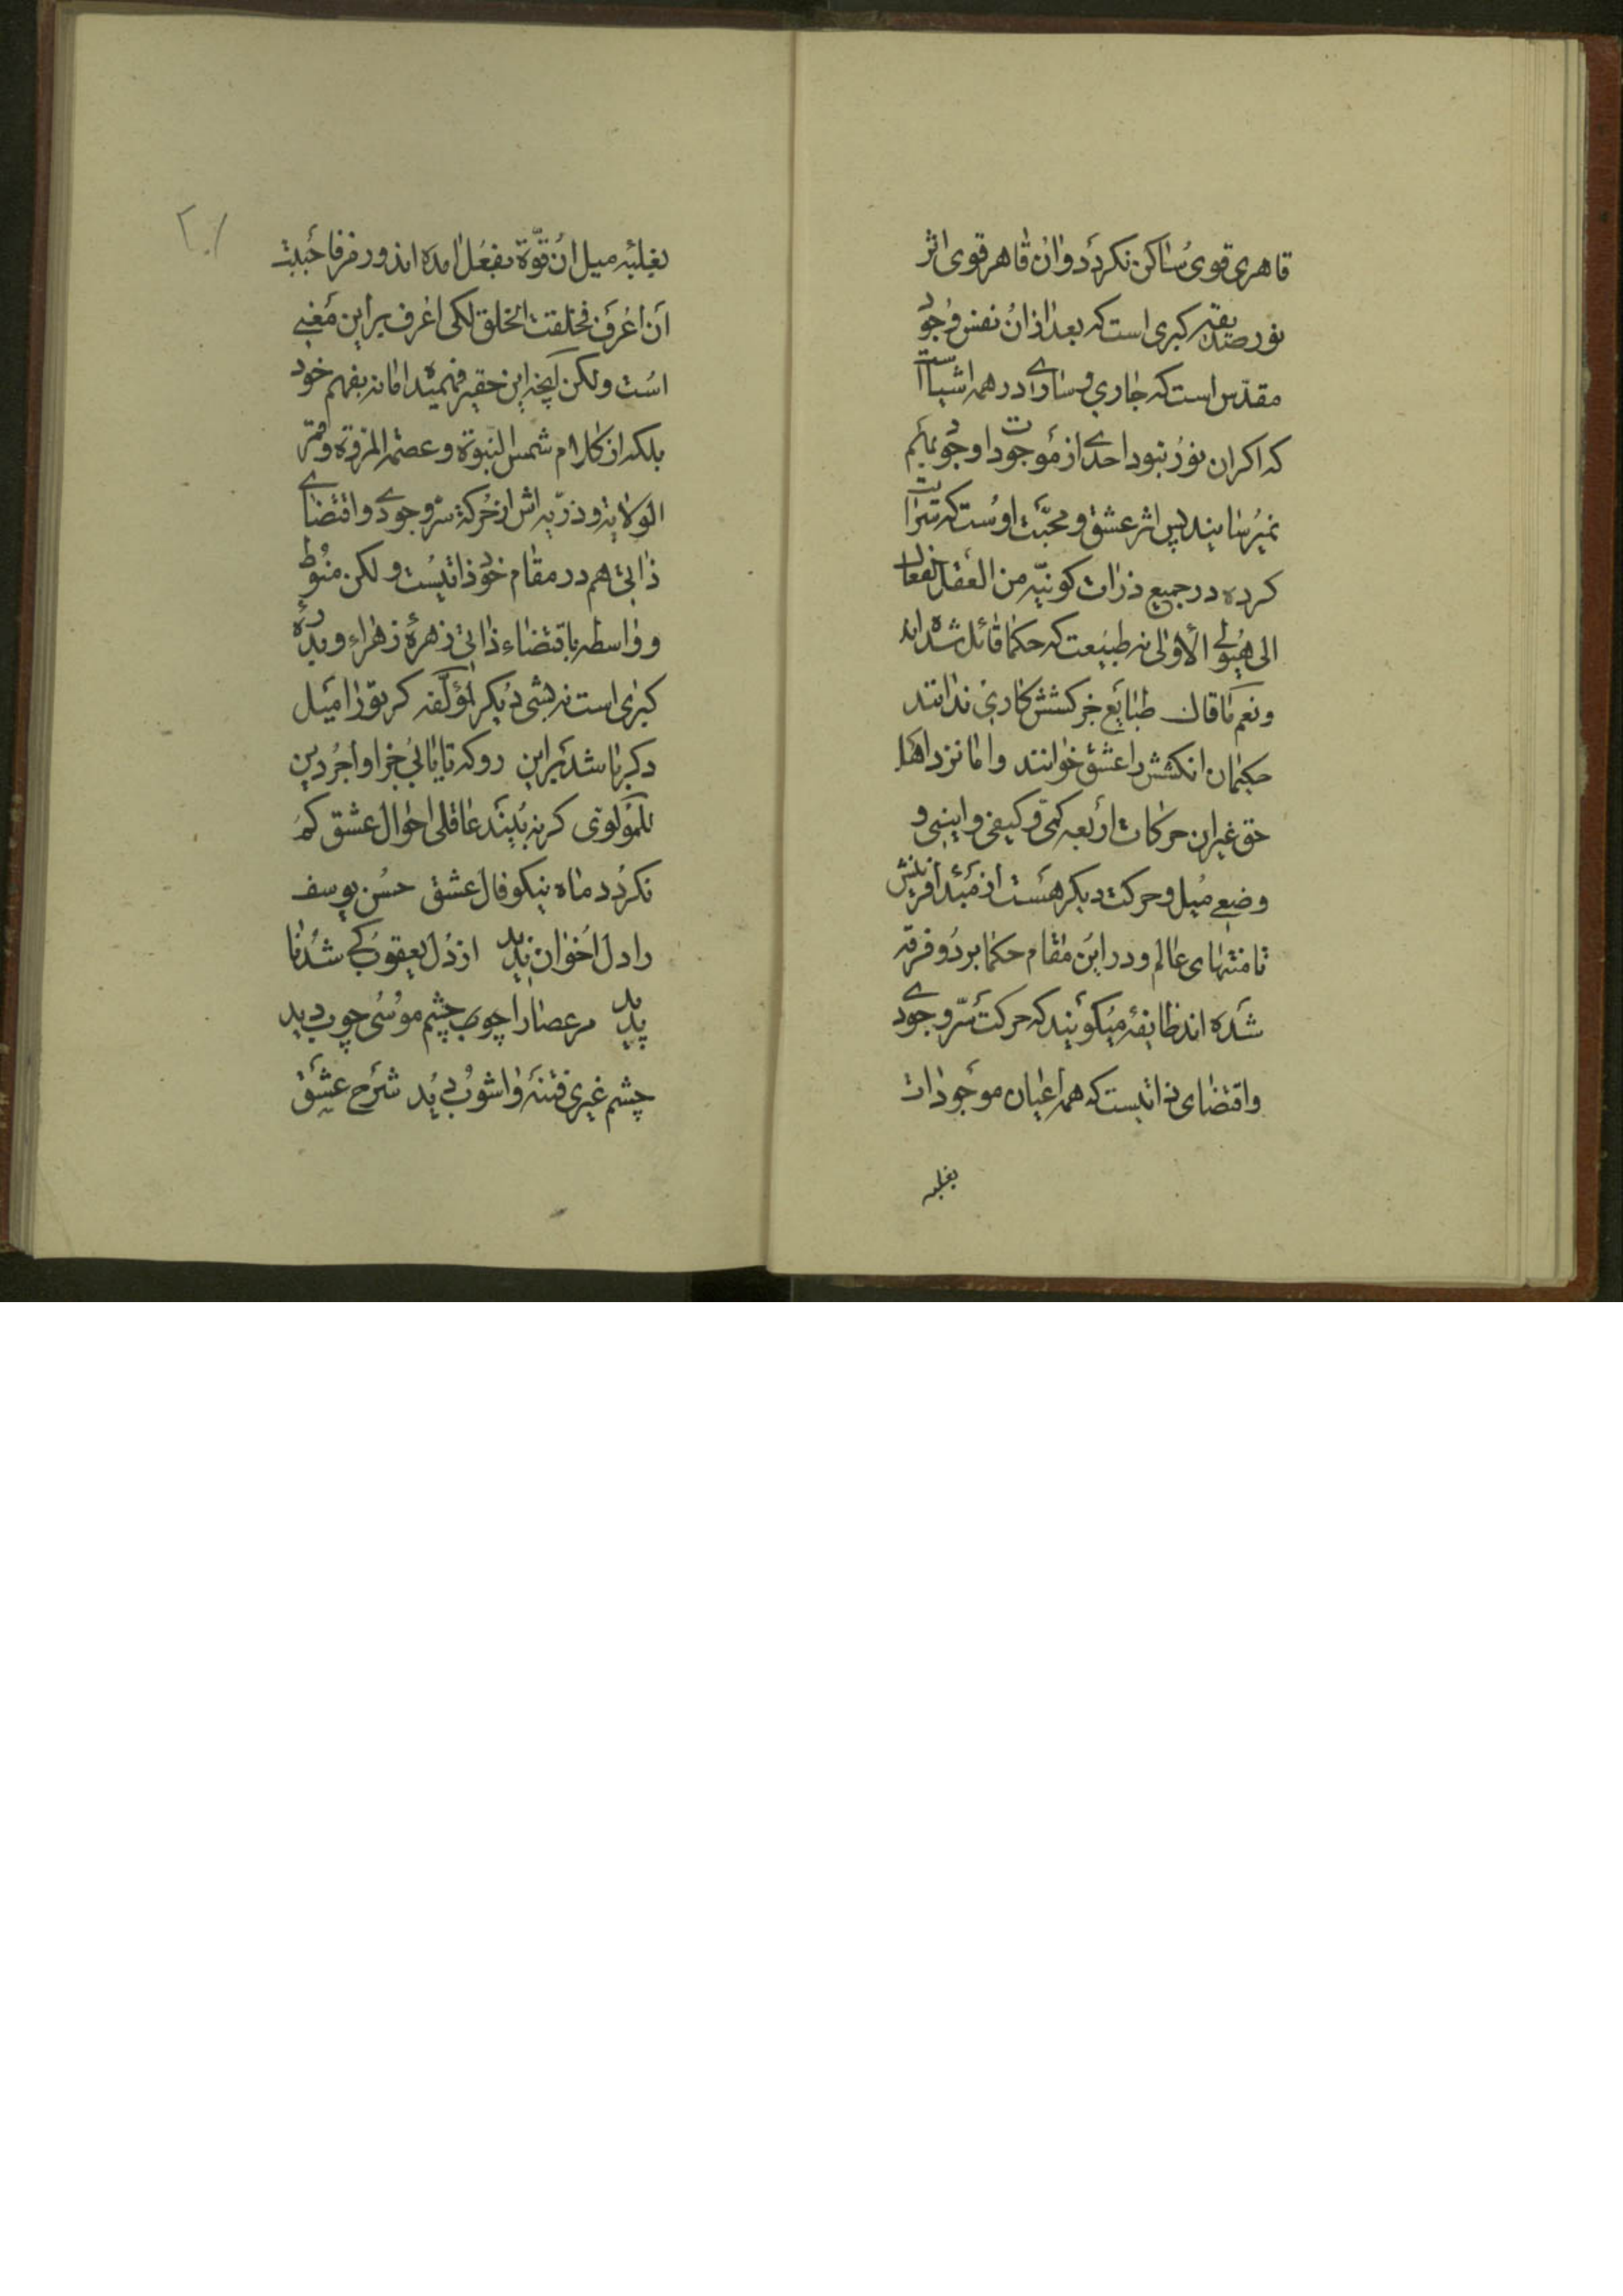 قاهری قوی ساکن نکردد و ان قاهر قوی اثر
نور صدیقه کبری است که بعد از ان نفس وجود
مقدس است که جاری و ساری در همه اشیاست
که اکر ان نور نبود احدی از موجودات وجود بهم
نمیرسانیند پس اثر عشق و محبت اوست که سرایت
کرده در جمیع ذرات کونیه من العقل الفعال
الی هیولی الاولی نه طبیعت که حکما قائل شده اند
و نعم ما قال طبایع جز کشش کاری ندانند
حکیمان انکشش را عشق خوانند و اما نزد اهل
حق غیر ان حرکات اربعه کمی و کیفی و اینی و
وضعی میل و حرکت دیکر هست از مبدا افرینش
تا منتهای عالم و در این مقام حکما بر دو فرقه
شده اند طایفه میکویند که حرکت سر وجودی
و اقتضای ذاتیست که همه اعیان موجودات
بغلبه
۲۰۱
بغلبه میل ان قوة بفعل امده اند و رمز فاحببت
ان اعرف فخلقت الخلق لکی اعرف بر این معنی
است ولکن انچه این حقیر فهمیده اما نه بفهم خود
بلکه از کلام شمس النبوة و عصمه المروة و قمر
الولایه و ذریه اش از حرکة سر وجودی و اقتضای
ذاتی هم در مقام خود ذاتیست ولکن منوط
و واسطه باقتضاء ذاتی زهرۀ زهراء و
کبری است نه بشی دیکر لمؤلفه کر تو را میل
دکر باشد بر این رو که تا یابی جزا و اجر دین
للمولوی کر نه بیند عاقلی احوال عشق کم
نکردد ماه نیکو فال عشق حسن یوسف
را دل اخوان ندید از دل یعقوب کی شد نا
پدید مر عصا را چوب چشم موسی چوب دید
چشم غیری فتنه و اشوب دید شرح عشق